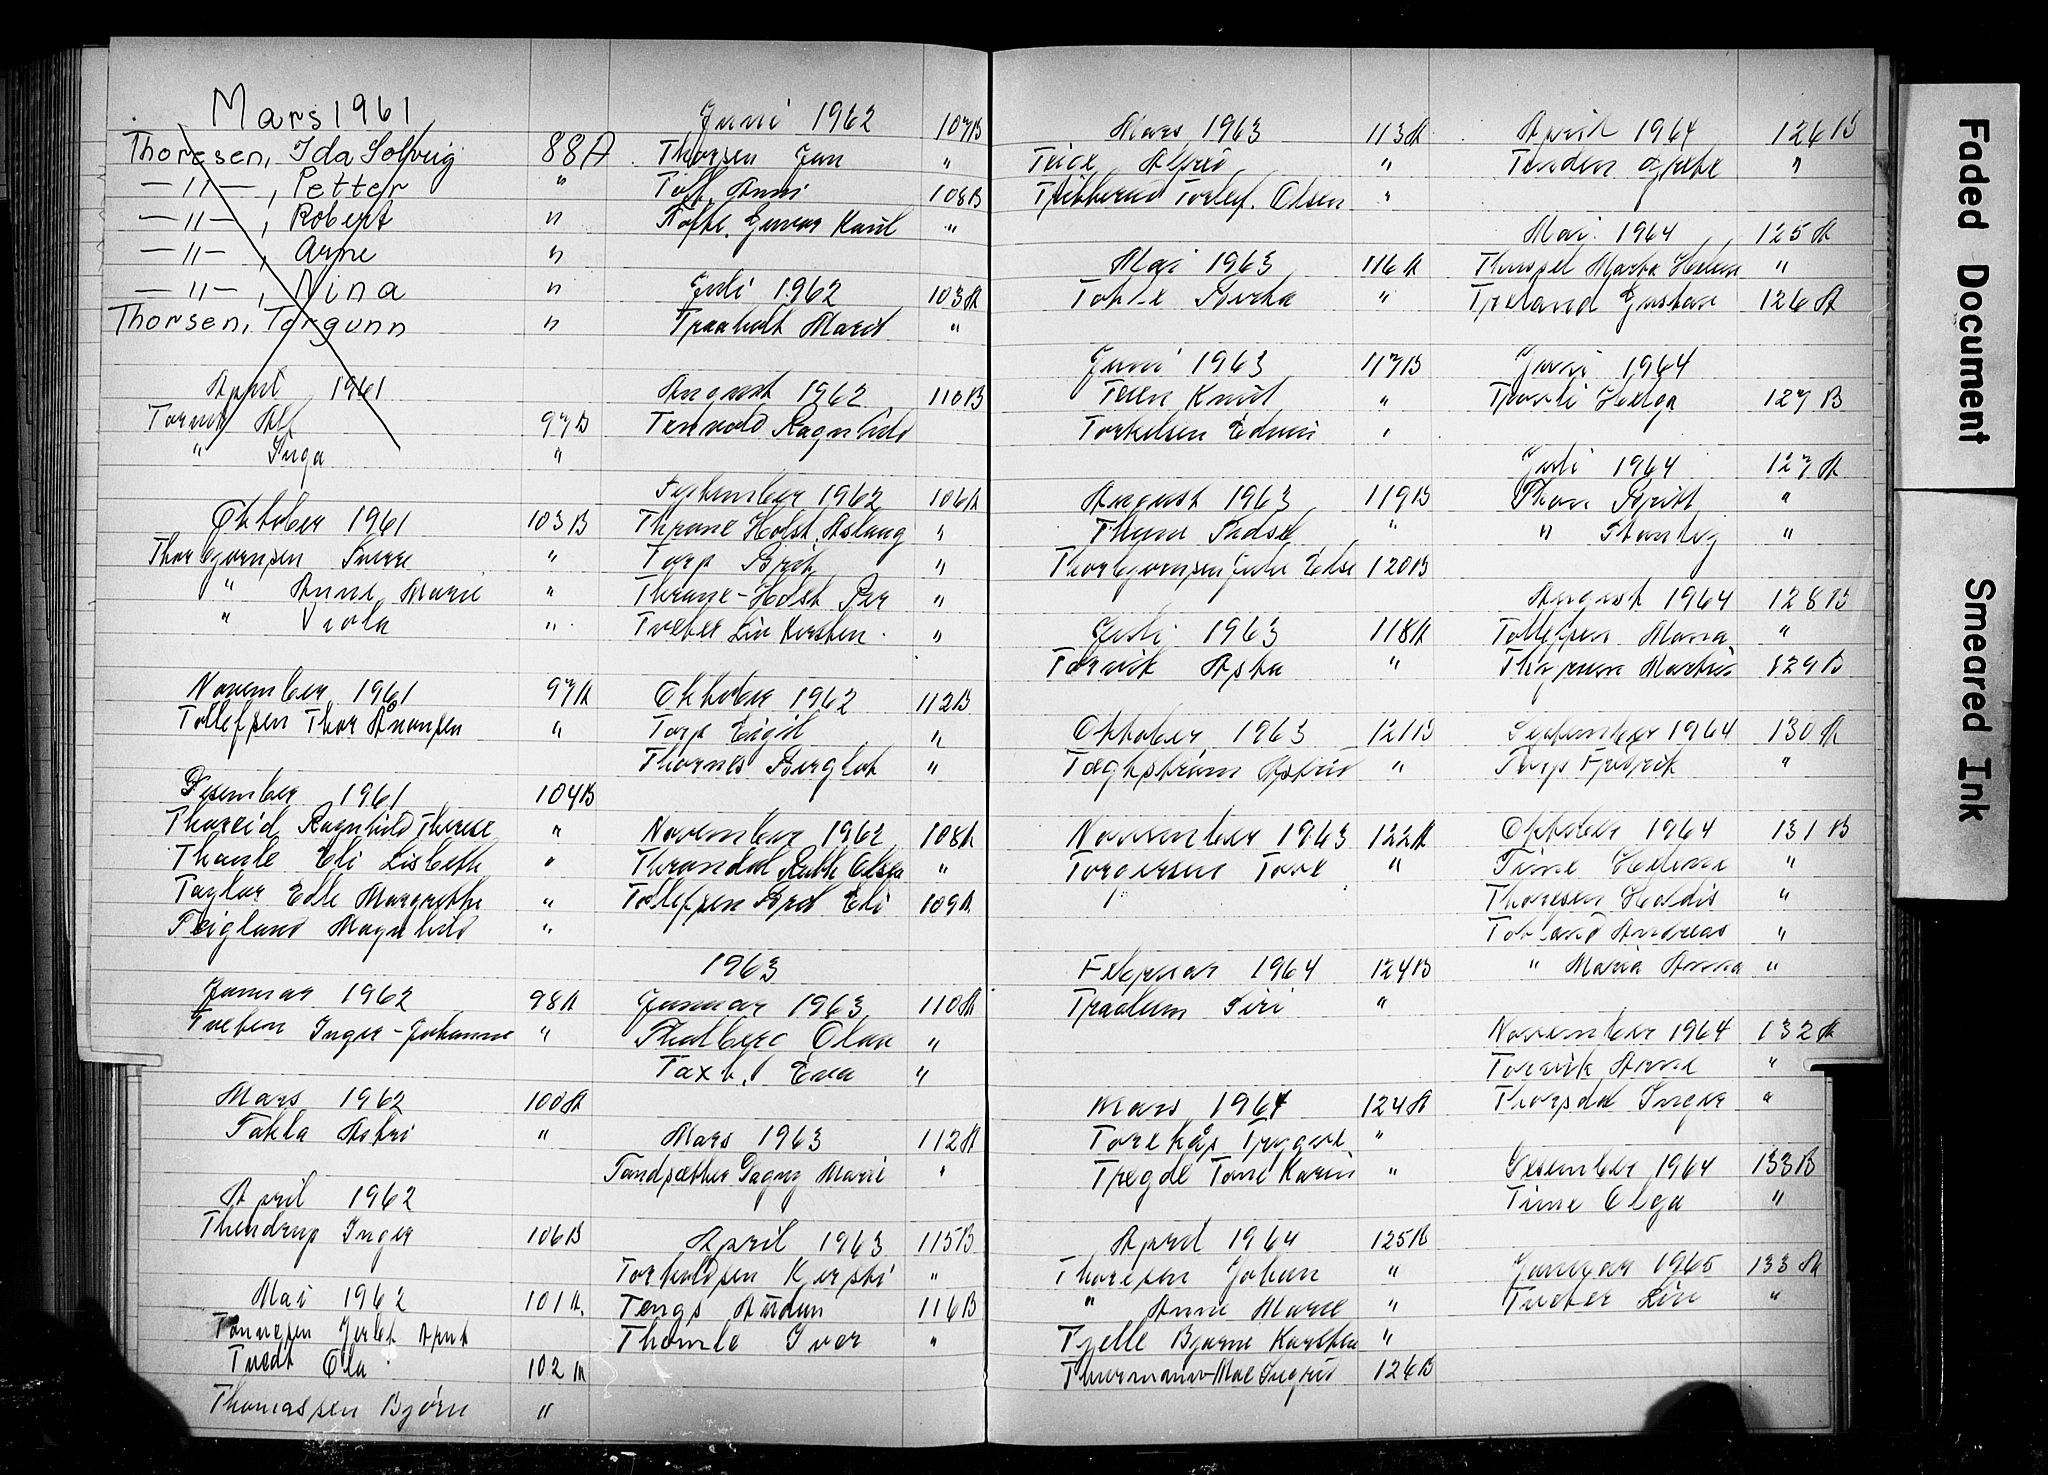 Mars 1961
Thoresen, Ida Solveig 88A
—"—, Petter "
—"—, Robert "
—"—, Arne "
—"—, Nina "
Thorsen, Torgunn "
April 1961
Torvik Alf 97B
" Inga "
Oktober 1961 103B
Thorbjørnsen Sverre "
" Anne Marie "
" Viola "
November 1961 97A
Tollefsen Thor Anonsen "
Desember 1961 104B
Thoreid Ragnhild Therese "
Thaule Eli Lisbeth "
Taylor Edle Margrethe "
Teigland Magnhild "
Januar 1962 98A
Tveten Inger-Johanne "
Mars 1962 100A
Takla Astri "
April 1962
Thendrup Inger 106B
Mai 1962 101A.
Tønnesen Gerlef Arnt
Tvedt Ola 102A
Thomassen Bjørn "
Juni 1962 107B
Thorsen Jan "
Toft, Anni 108B
Tofte, Gunvor Karil "
Juli 1962 103A
Traaholt Marit "
August 1962 110B
Tenvold Ragnhild
September 1962 106A
Thrane Holst, Aslaug "
Torp Brit "
Thrane-Holst Per "
Tveter Liv Kirsten "
Oktober 1962 112B
Torp Eigil "
Thornes Bergliot "
November 1962 108A
Throndal Ruth Olsen "
Tollefsen Brit Eli 109A
1963
Januar 1963 110A
Thalberg Olaa "
Taxt, Eva "
Mars 1963 112A
Tandsæther Dagny Marie "
April 1963 115B
Torkildsen Kjersti "
Tengs Audun 116B
Thomle Iver "
Mars 1963 113A
Teige Alfred "
Tjebberud Torlef. Olsen "
Mai 1963 116A
Tofte Borka "
Juni 1963 117B
Teien Knut "
Torkelsen Edvin "
August 1963 119B
Thune Sidsel "
Thorbjørnsen Julie Edse 120B
Juli 1963 118A
Torvik Asta "
Oktober 1963 121B
Tæghstrøm Astrid "
November 1963 122A
Torgersen Tove "
Februar 1964 124B
Tradlum Siri "
Mars 1964 124A
Torekås Trygve "
Tregde Tone Karin "
April 1964 125B
Thoresen Johan "
" Anne Marie "
Tjelle Bjarne Karsten "
Thuermann-Moe Ingrid 126B
April 1964 126B
Tenden Grete "
Mai 1964 125A
Marta Helene "
Tveland Gustav 126A
Juni 1964
Tveili Helga 127B
Juli 1964 127A
Thon Brit "
" Stanley "
August 1964 128B
Tollefsen Maria "
Martin 129B
September 1964 130A
Torp Fredrik "
Oktober 1964 131B
Time Helene "
Thoresen Heldis "
Andreas "
" Maria Anna "
November 1964 132A
Torvik Anne "
Thorsdal Inger "
Desember 1964 133B
Time Olga "
Januar 1965 133A
Tveter Liv "
Faded Document
Smeared Ink